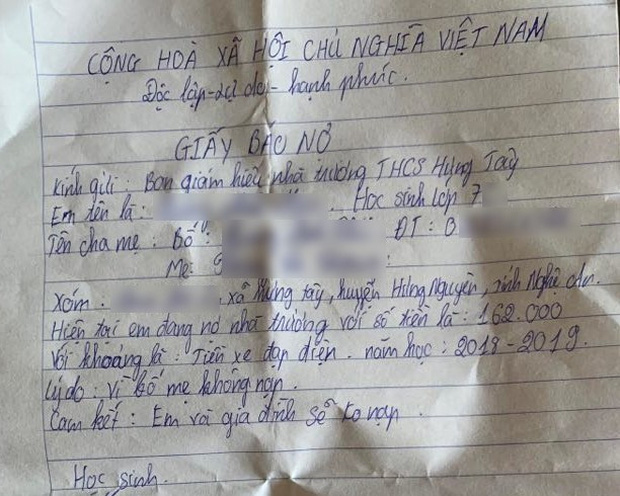 CỘNG HOÀ XÃ HỘI CHỦ NGHĨA VIỆT NAM
Độc lập - tự do - hạnh phúc.
GIẤY BÁO NỢ
Kính gửi : Ban giám hiệu nhà trường THCS Hưng Tây
Em tên là : Học sinh lớp 7
Tên cha mẹ : Bố : ĐT : 0
Mẹ :
Xóm : , xã Hưng tây, huyện Hưng Nguyên, tỉnh Nghệ An.
Hiện tại em đang nợ nhà trường với số tiền là : 162.000
Với khoảng là : Tiền xe đạp điện . năm học : 2018 - 2019.
Lý do : Vì bố mẹ không nạp .
Cam kết : Em và gia đình sẽ ko nạp .
Học sinh.